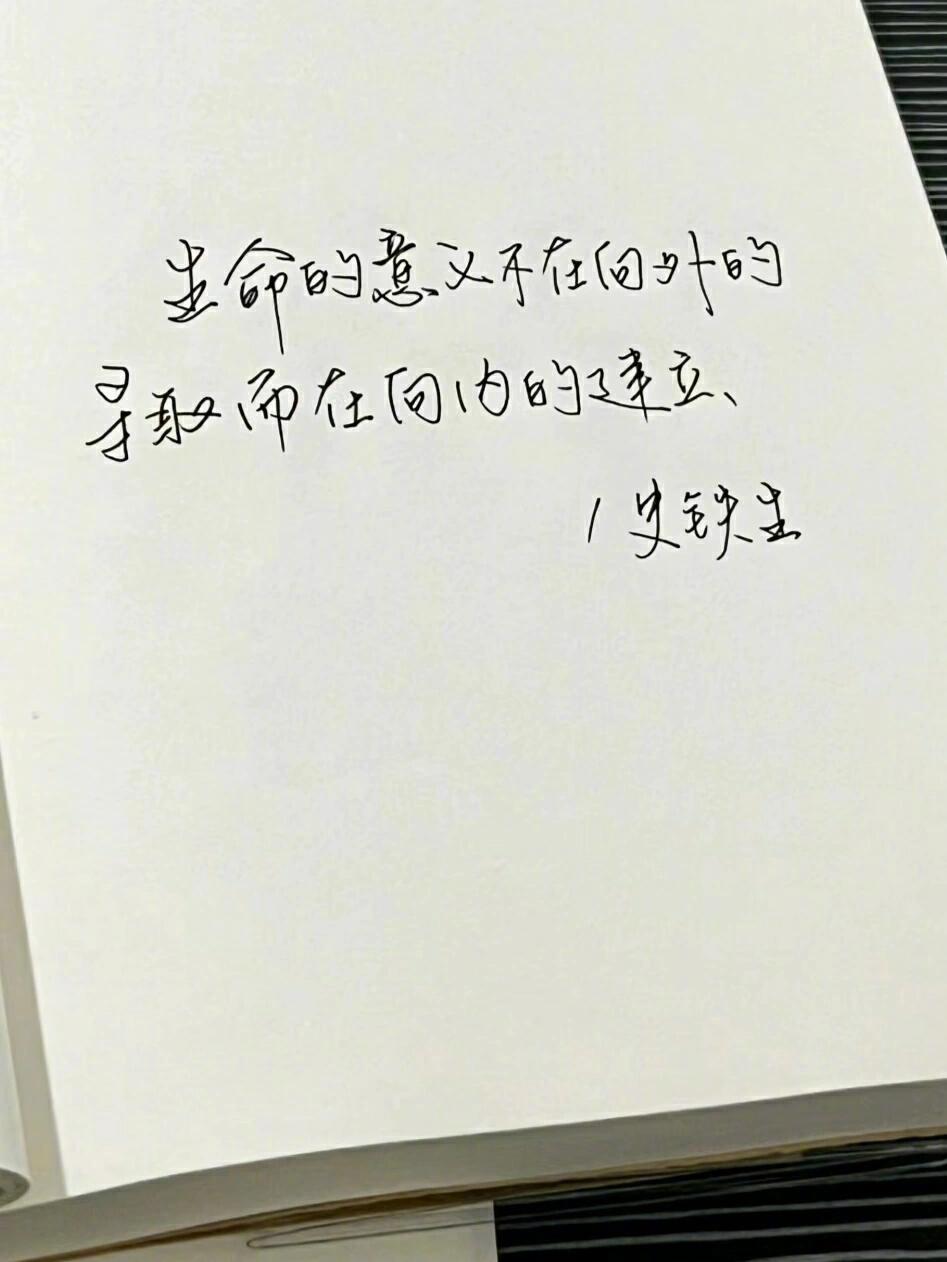 生命的意义不在向外的
寻取而在向内的建立、
/ 史铁生